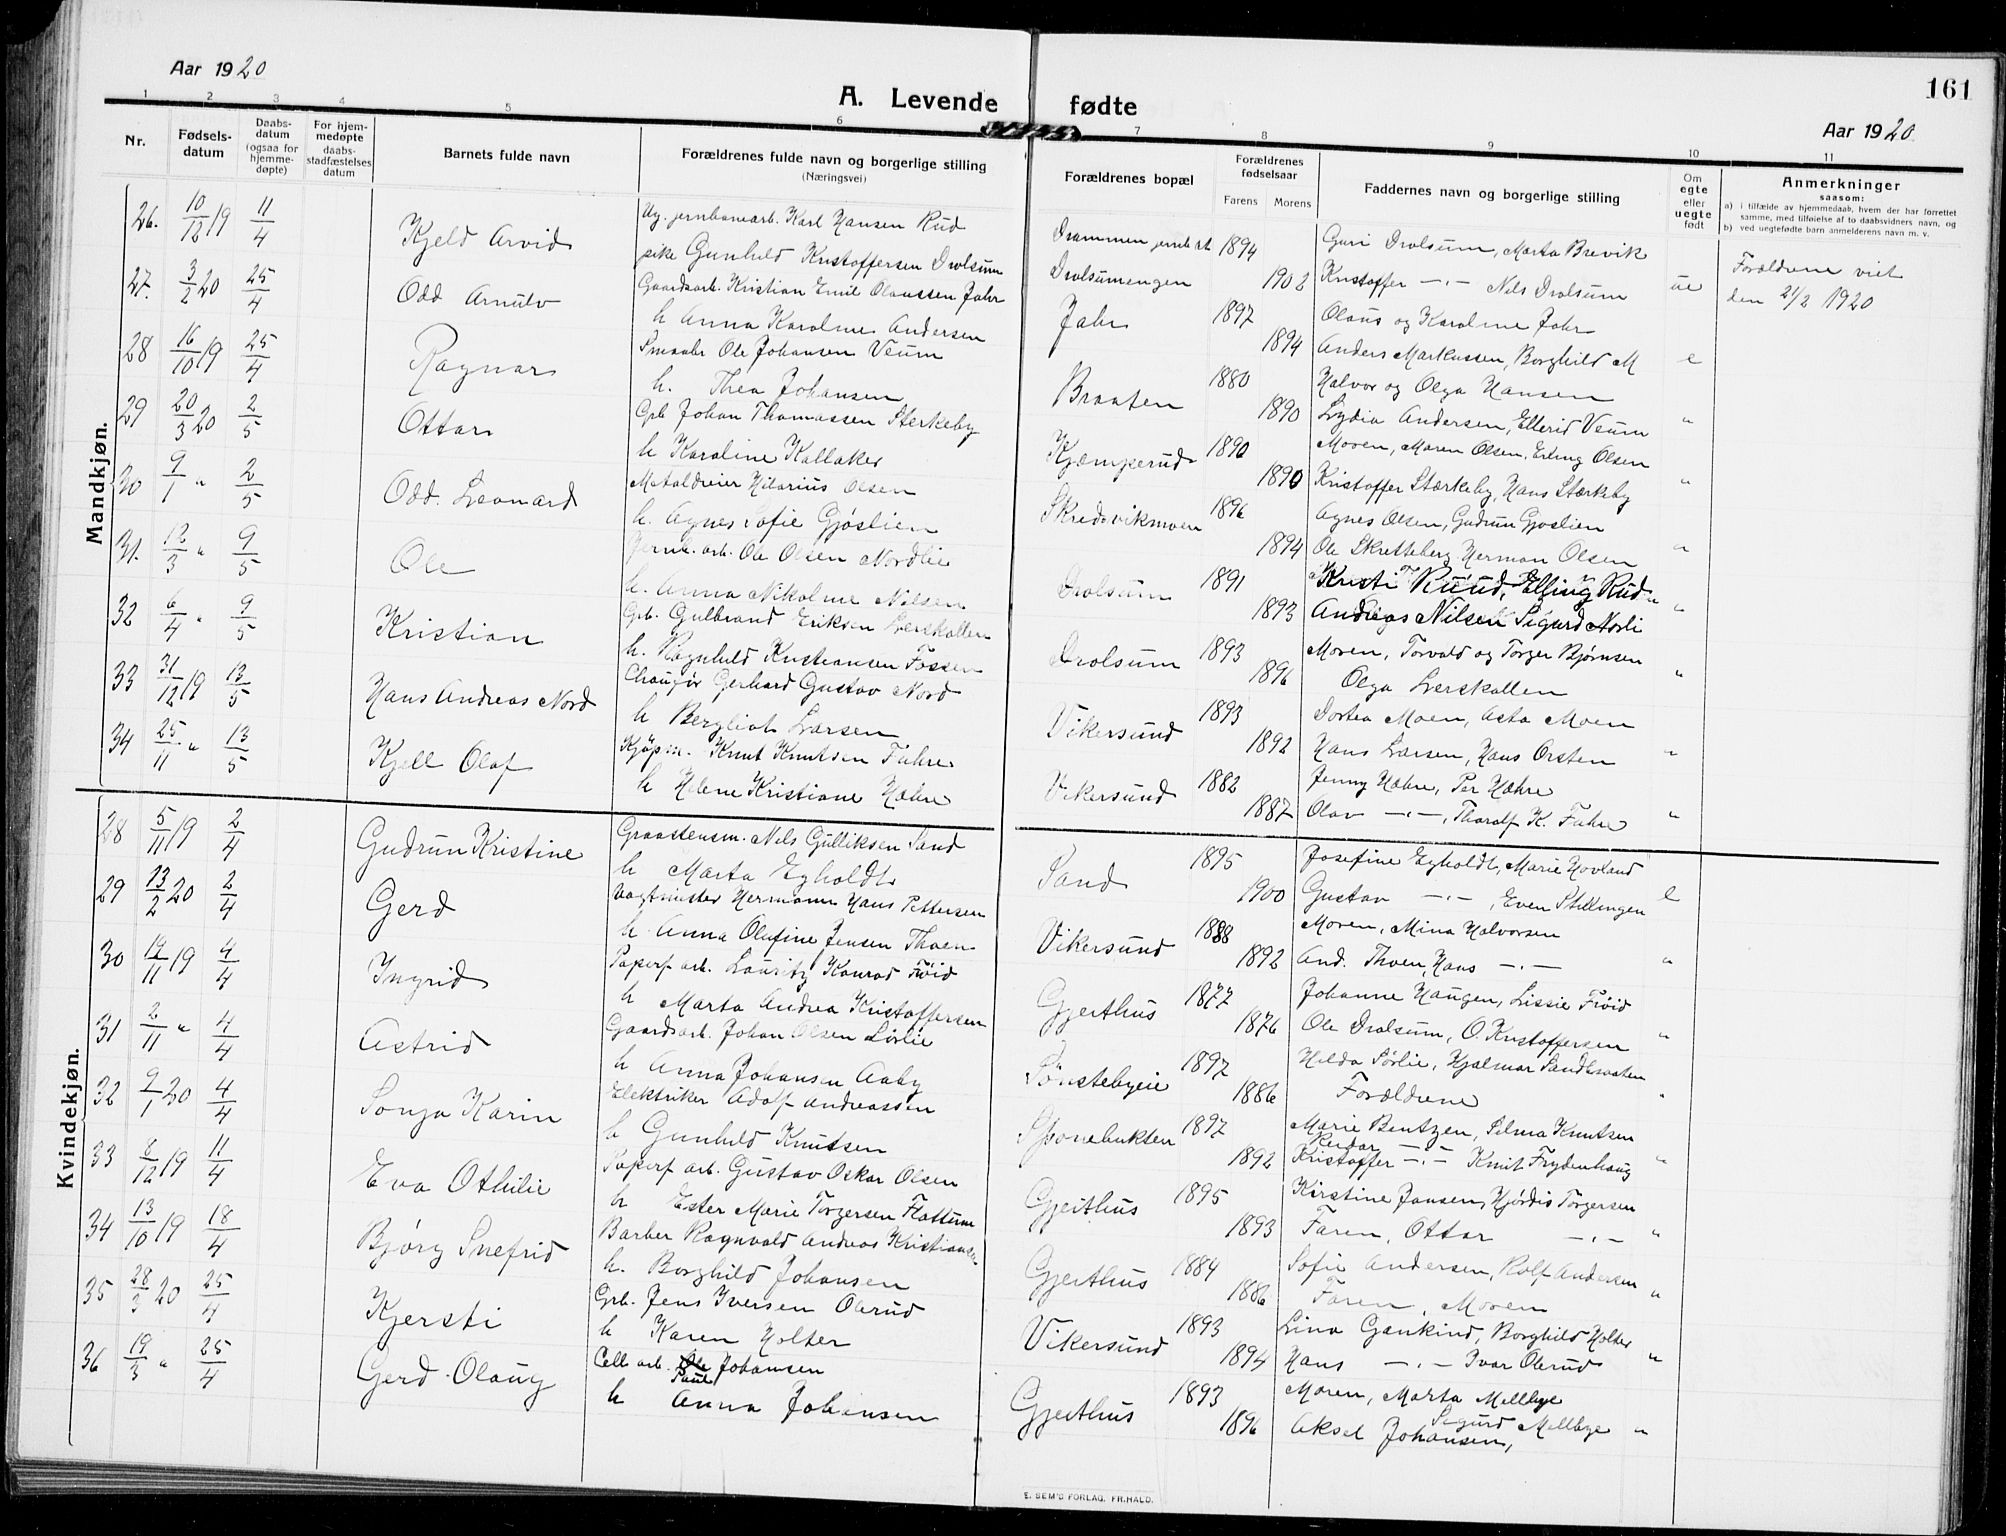 161
Aar 1920
A. Levende fødte
Aar 1920
1 2 3 4 5 6 7 8 9 10 11
Nr.
Fødsels-datum
Daabs-datum (ogsaa for hjemme-døpte)
For hjem-medøpte daabs-stadfæstelses datum
Barnets fulde navn
Forældrenes fulde navn og borgerlige stilling (Næringsvei)
Forældrenes bopæl
Forældrenes fødselsaar
Farens Morens
Faddernes navn og borgerlige stilling
Om egte eller uegte født
Anmerkninger saasom:
a) i tilfælde av hjemmedaab, hvem der har forrettet samme, med tilføielse af to daabsvidners navn, og
b) ved uegtefødte barn anmelderens navn m. v.
Mandkjøn.
26. 10/12 19 11/4 Kjeld Arvid Ug. jernbanearb. Karl Hansen Rud Drammen 1894 Guri Drolsum, Marta Brevik
pike Gunhild Kristoffersen Drolsum Drolsumengen 1902 Kristoffer -"- Nils Drolsum ue Forældrene viet
den 21/2 1920
27. 3/2 20 25/4 Odd Arnulv Gaardsarb. Kristian Emil Olaussen Jahr Jahr 1897 Olaus og Karoline Jahr
h Anna Karoline Andersen 1894 Anders Markussen, Borghild M e
28 16/10 19 25/4 Ragnar Smaabr Ole Johansen Veum Braaten 1880 Halvor og Olga Hansen
h. Thea Johansen 1890 Lydia Andersen, Ellerid Veum "
29 20/3 20 2/5 Ottar Grb Johan Thomassen Sterkeby Kjæmperud 1890 Moren, Maren Olsen, Erling Olsen
h Karoline Kallaker 1890 Kristoffer Stærkeby, Hans Stærkeby "
30 9/1 " 2/5 Odd. Leonard Metaldreier Hilarius Olsen Skredsvikmoen 1896 Agnes Olsen, Gudrun Gjøslien
h. Agnes Sofie Gjøslien 1894 Ole Skretteberg Herman Olsen "
31. 12/3 " 9/5 Ole Jernb. arb. Ole Olsen Nordlie Drolsum 1891 Kristi Ruud, Elling Rud
h. Anna Nikoline Nilsen 1893 Andreas Nilsen Sigurd Norli "
32 6/4 " 9/5 Kristian Grb. Gulbrand Eriksen Lerskallen Drolsum 1893 Moren, Torvald og Torger Bjørnsen
h. Ragnhild Kristiansen Fossen 1896 Olga Lerskallen "
33 31/12 19 13/5 Hans Andreas Nord Chauffør Gerhard Gustav Nord Vikersund 1893 Dortea Moen, Asta Moen
h Bergliot Larsen 1892 Hans Larsen, Hans Orsten "
34 25/11 " 13/5 Kjell Olaf Kjøpm. Knut Knutsen Fahre Vikersund 1882 Jenny Næhre, Per Næhre
h Helene Kristiane Næhre 1887 Olav -"-, Tharalf K. Fahre "
Kvindekjøn.
28 5/11 19 2/4 Gudrun Kristine Graastensm. Nils Gulliksen Sand Sand 1895 Josefine Egholdt, Marie Hovland
h Marta Egholdt 1900 Gustav -"-, Even Stillingen e
29 13/2 20 2/4 Gerd Vagtmister Hermann Hans Pettersen Vikersund 1888 Moren, Mina Halvorsen
h Anna Olufine Jensen Thoen 1892 And. Thoen, Hans -"- "
30 19/11 19 4/4 Ingrid Papirf arb. Lauritz Konrad Frøid Gjeithus 1877 Johanne Haugen, Lissie Frøid
h Marta Andrea Kristoffersen 1876 Ole Drolsum, O. Kristoffersen "
31 2/11 " 4/4 Astrid Gaardsarb. Johan Olsen Sørlie Sønstebyeie 1897 Hilda Sørlie, Hjalmar Sandbraaten
h Anna Johansen Aaby 1886 Forældrene "
32 9/1 20 4/4 Sonja Karin Elektriker Adolf Andreassen Sponebukten 1897 Marie Bentzen, Selma Knutsen
h Gunhild Knutsen 1892 Reidar
Kristoffer -"- Knut Frydenhaug "
33 8/12 19 11/4 Eva Othilie Papirf arb. Gustav Oskar Olsen Gjeithus 1895 Kirstine Jansen, Hjørdis Torgersen
h Ester Marie Torgersen Flattum 1893 Faren, Ottar -"- "
34 13/10 19 18/4 Bjørg Snefrid Barber Ragnvald Andreas Kristiansen Gjeithus 1884 Sofie Andersen, Rolf Andersen
h. Borghild Johansen 1886 Faren, Moren "
35 28/3 20 25/4 Kjersti Grb. Jens Iversen Olerud Vikersund 1893 Lina Gjenkind, Borghild Holter
h Karen Holter 1894 Hans -"- Ivar Olerud "
36 19/3 " 25/4 Gerd Olaug Cell arb. Ole Paul Johansen Gjeithus 1893 Moren, Marta Mellbye
h Anna Johansen 1896 Aksel Johansen, Sigurd Mellbye "
E. SEM'S FORLAG, FR.HALD.